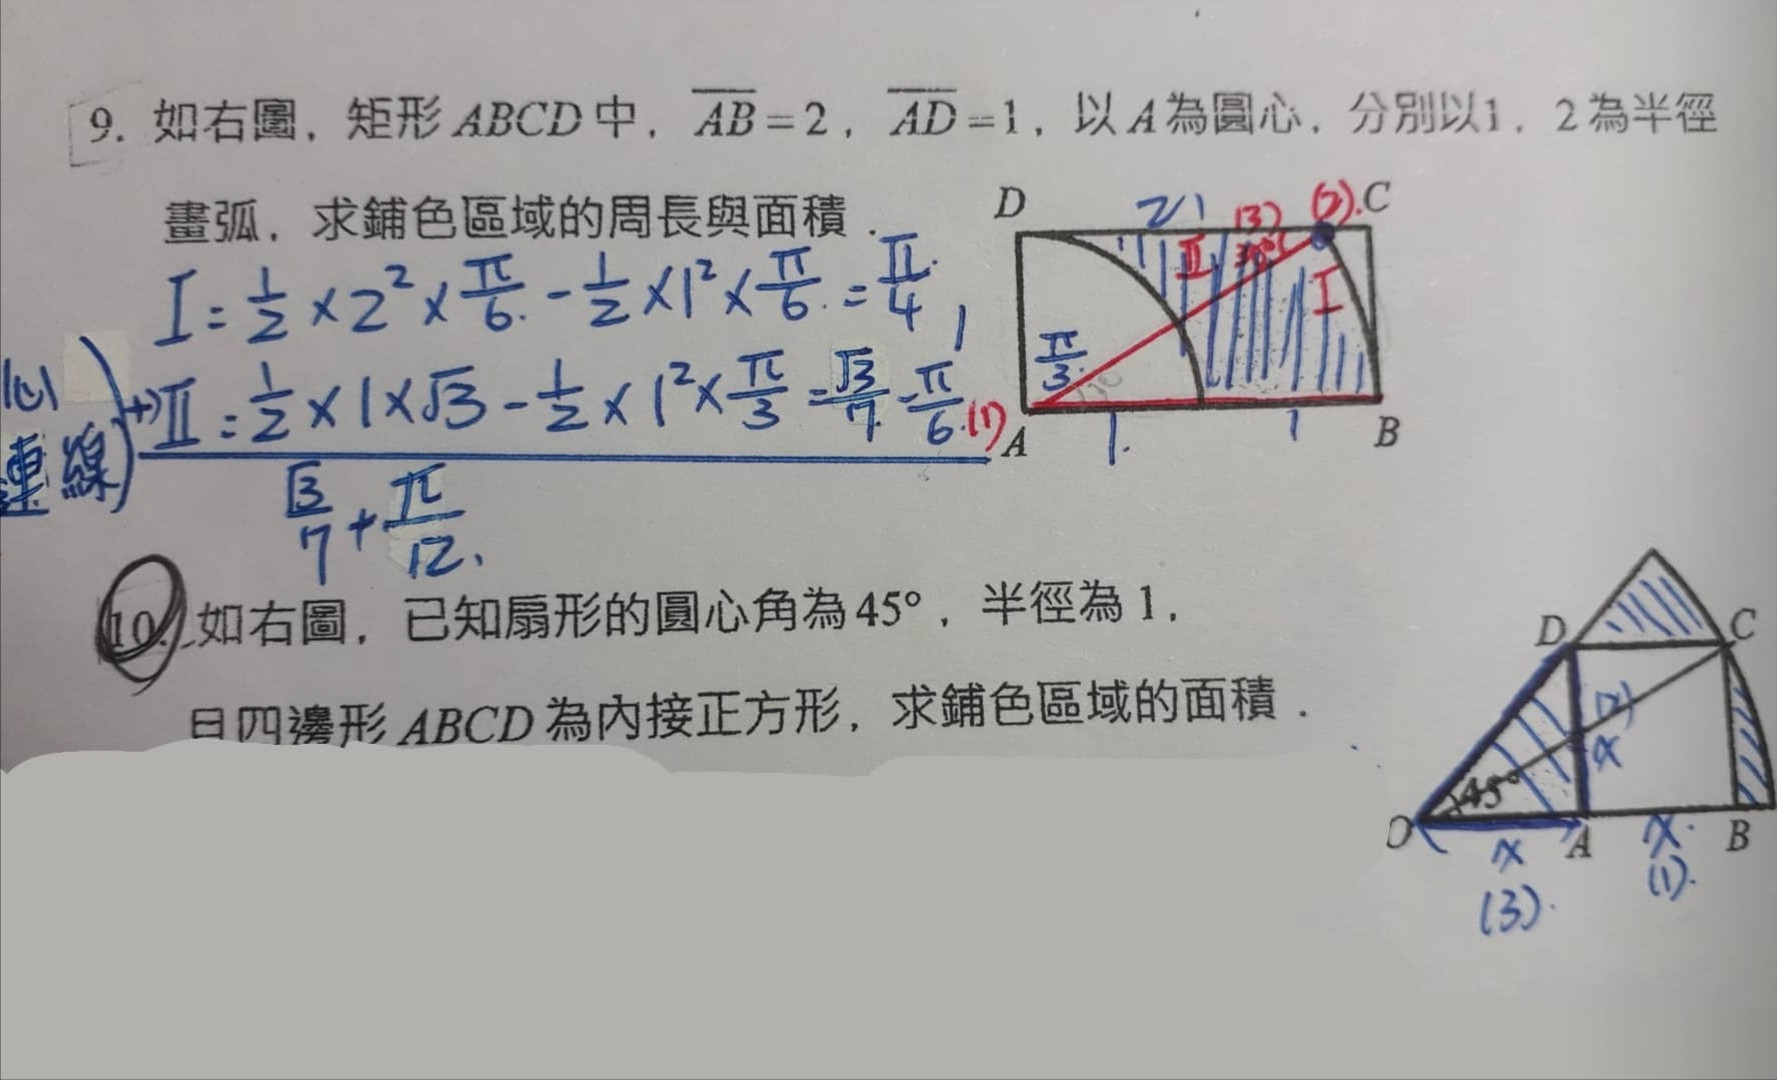 9. 如右圖，矩形 ABCD 中，AB=2，AD=1，以 A 為圓心，分別以1，2 為半徑
畫弧，求鋪色區域的周長與面積．
I = 1/2 × 2² × π/6. - 1/2 × 1² × π/6. = π/4
連線
+) II = 1/2 × 1 × √3 - 1/2 × 1² × π/3 = √3/7 - π/6.
√3/7 + π/12.
D
(3)
(2).
C
II
30°
I
π/3.
(1)
A
1.
1
B
10. 如右圖，已知扇形的圓心角為 45°，半徑為 1，
且四邊形 ABCD 為內接正方形，求鋪色區域的面積．
D
C
(2)
x
45°
O
x
A
x.
B
(1).
(3).